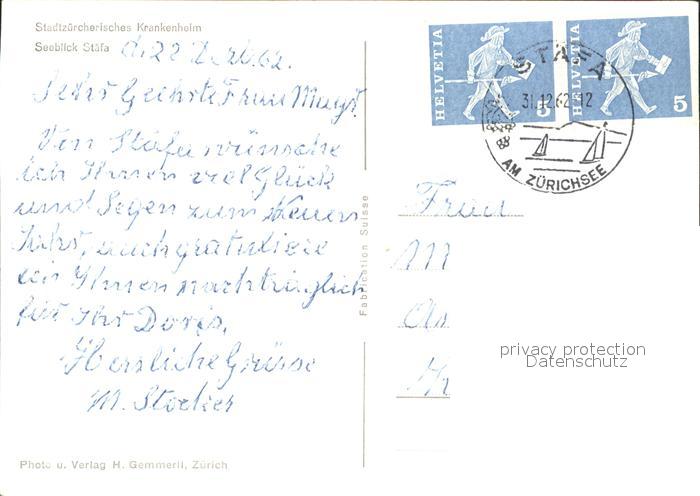 Stadtzürcherisches Krankenheim
Seeblick Stäfa
d. 22 Dez. 62.
Sehr Geehrte Frau
Von Stäfa wünsche
ich Ihnen viel Glück
und Segen zum Neuen
Jahr, auch gratuliere
ich Ihnen nachträglich
für Ihr Doris.
Herzliche Grüsse
M. Stocker
Photo u. Verlag H. Gemmerli, Zürich
Fabrication Suisse
HELVETIA
HELVETIA 5
STÄFA
31.12.62
AM ZÜRICHSEE
Frau
M
privacy protection
Datenschutz